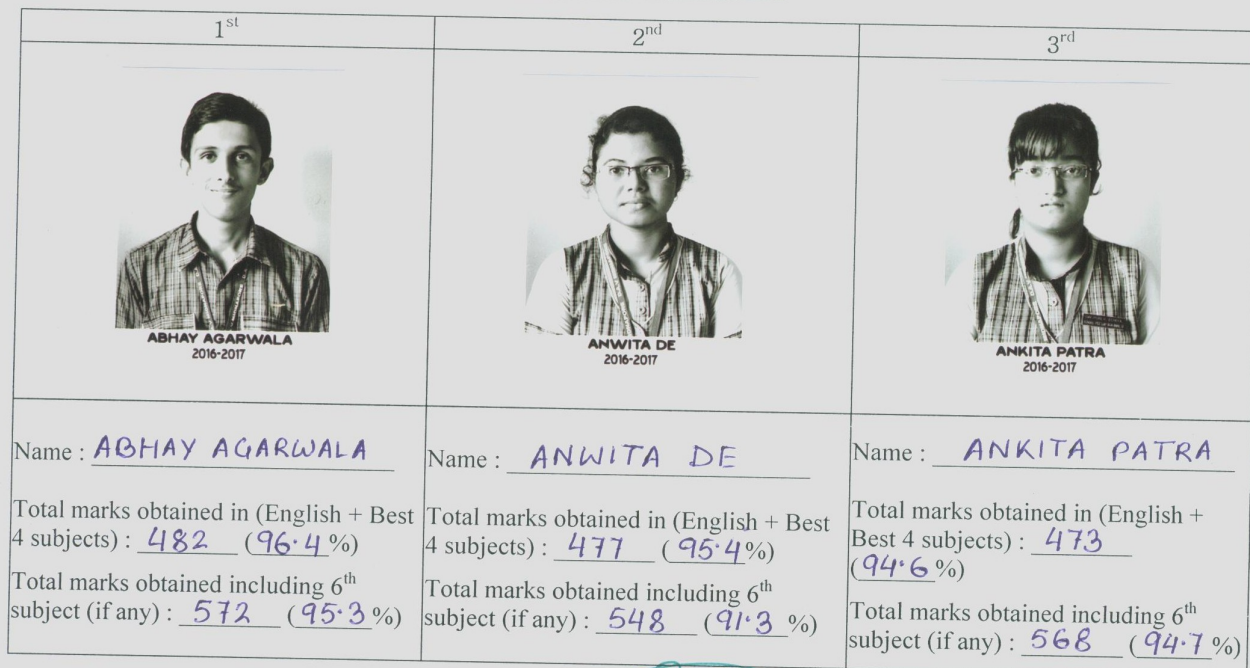 1st
2nd
3rd
ABHAY AGARWALA
2016-2017
ANWITA DE
2016-2017
ANKITA PATRA
2016-2017
Name : ABHAY AGARWALA
Total marks obtained in (English + Best
4 subjects) : 482 (96.4%)
Total marks obtained including 6th
subject (if any) : 572 (95.3%)
Name : ANWITA DE
Total marks obtained in (English + Best
4 subjects) : 477 (95.4%)
Total marks obtained including 6th
subject (if any) : 548 (91.3%)
Name : ANKITA PATRA
Total marks obtained in (English +
Best 4 subjects) : 473
(94.6%)
Total marks obtained including 6th
subject (if any) : 568 (94.7%)